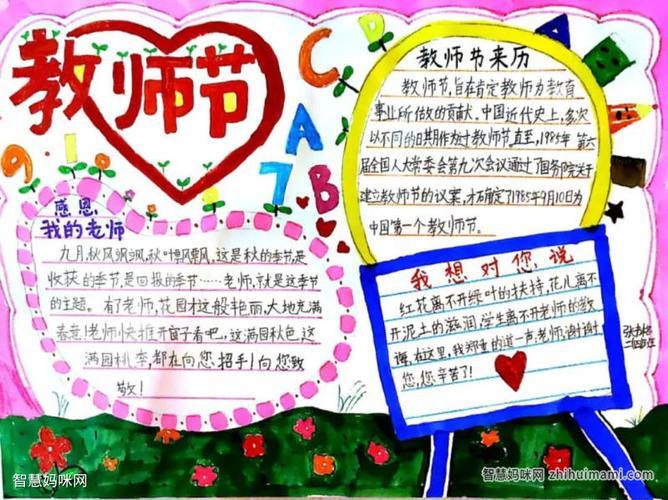 教师节
C D A
A
B
9 1 0 7
教师节来历
教师节，旨在肯定教师为教育
事业所做的贡献。中国近代史上，多次
以不同的日期作为过教师节。直至，1985年第六
届全国人大常委会第九次会议通过了国务院关于
建立教师节的议案，才确定了1985年9月10日为
中国第一个教师节。
感恩
我的老师
九月，秋风飒飒，秋叶飘飘，这是秋的季节，是
收获的季节，是回报的季节……老师，就是这季节
的主题。有了老师，花园才这般艳丽，大地充满
春意！老师快推开窗子看吧，这满园秋色，这
满园桃李，都在向您招手！向您致
敬！
我想对您说
红花离不开绿叶的扶持，花儿离不
开泥土的滋润，学生离不开老师的教
诲，在这里，我郑重的道一声，老师，谢谢
您，您辛苦了！
智慧妈咪网
智慧妈咪网 zhihuimami.com